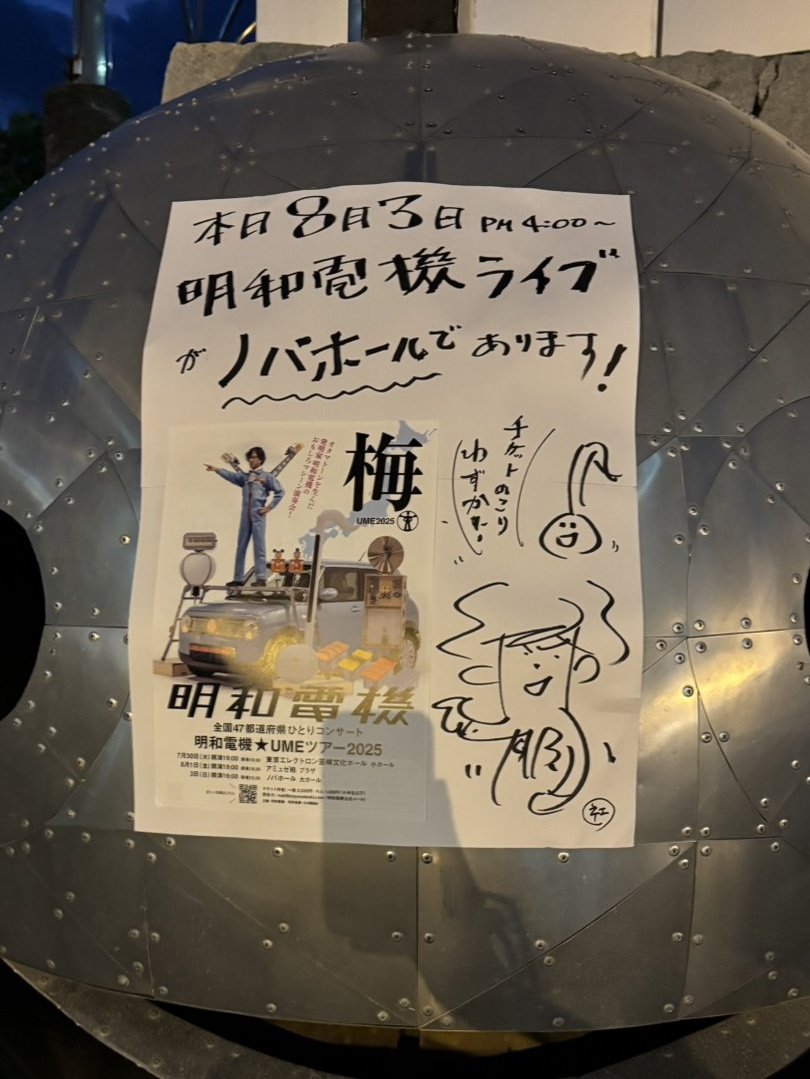 本日8月3日 PM 4:00〜
明和電機ライブ
が ノバホールで あります!
チケットのこり
わずか!
オタマトーンを生んだ
発明家明和電機の
おもしろマシーン演奏会!
梅
UME2025
明和電機
全国47都道府県ひとりコンサート
明和電機★UMEツアー2025
7月30日(水)開演19:00 東京エレクトロン韮崎文化ホール 小ホール
8月1日(金)開演19:00 アミュゼ柏 プラザ
3日(日)開演16:00 ノバホール 大ホール
紅